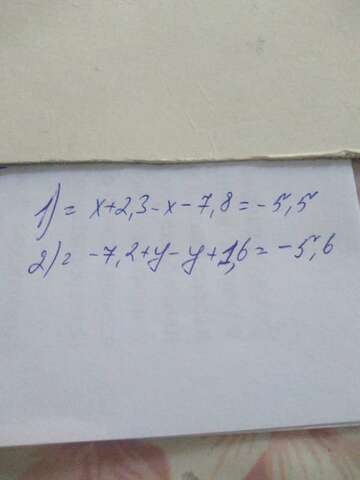 1) = x+2,3-x-7,8=-5,5
2) = -7,2+y-y+1,6=-5,6